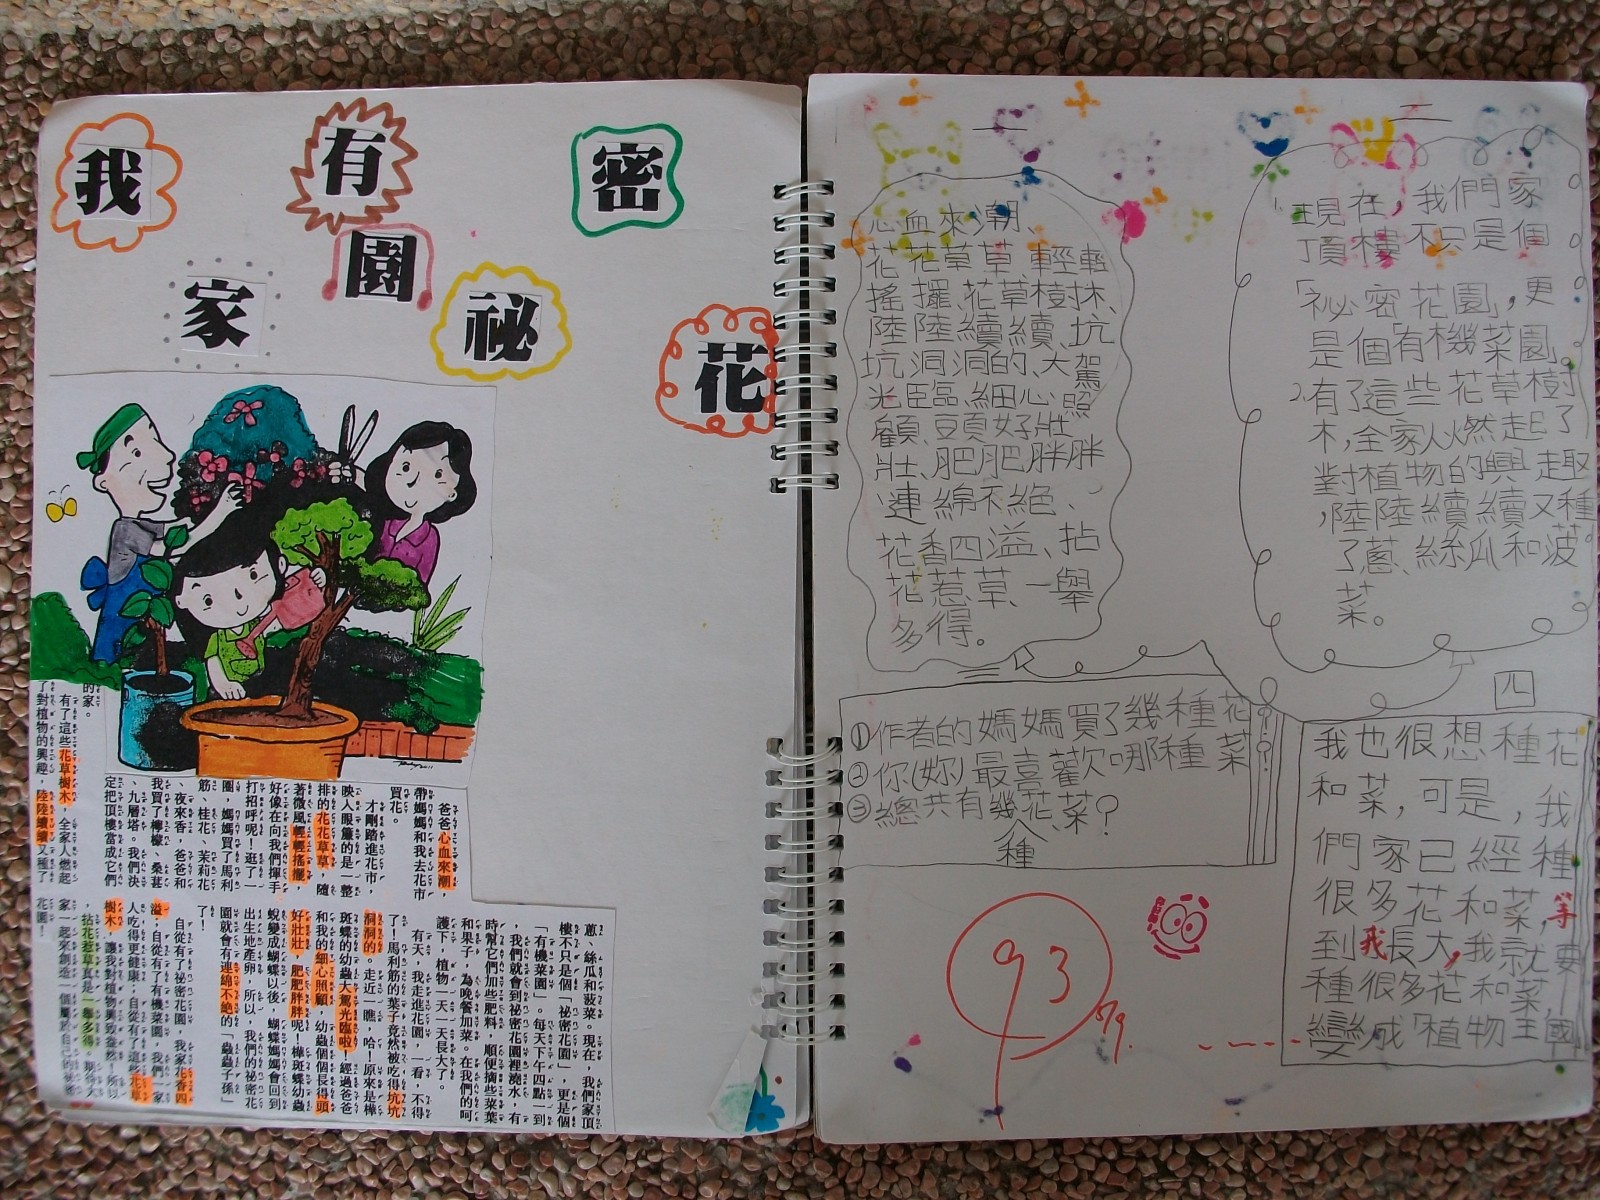 我
有
密
家
園
祕
花
爸爸心血來潮,
帶媽媽和我去花市
買花。
才剛踏進花市,
映入眼簾的是一整
排的花花草草,隨
著微風輕輕搖擺,
好像在向我們揮手
打招呼呢!逛了一
圈,媽媽買了馬利
筋、桂花、茉莉花
、夜來香,爸爸和
我買了檸檬、桑葚
、九層塔。我們決
定把頂樓當成它們
的家。
有了這些花草樹木,全家人燃起
了對植物的興趣,陸陸續續又種了
蔥、絲瓜和菠菜。現在,我們家頂
樓不只是個「祕密花園」,更是個
「有機菜園」。每天下午四點一到
,我們就會到祕密花園裡澆水,有
時幫它們加些肥料,順便摘些菜葉
和果子,為晚餐加菜。在我們的呵
護下,植物一天一天長大了。
有天,我走進花園,一看,不得
了!馬利筋的葉子竟然被吃得坑坑
洞洞的。走近一瞧,哈!原來是樺
斑蝶的幼蟲大駕光臨啦!經過爸爸
和我的細心照顧,幼蟲個個長得頭
好壯壯,肥肥胖胖呢!樺斑蝶幼蟲
蛻變成蝴蝶以後,蝴蝶媽媽會回到
出生地產卵,所以,我們的祕密花
園就會有連綿不絕的「蟲蟲子孫」
了!
自從有了祕密花園,我家花香四
溢;自從有了有機菜園,我們一家
人吃得更健康;自從有了這些花草
樹木,讓我對植物興致盎然!所以
,拈花惹草真是一舉多得。期待大
家一起來創造一個屬於自己的祕密
花園!
一
心血來潮、
花花草草、輕輕
搖擺、花草樹木、
陸陸續續、坑
坑洞洞的、大駕
光臨、細心照
顧、頭好壯
壯、肥肥胖胖
、連綿不絕、
花香四溢、拈
花惹草、一舉
多得。
二
「現在,我們家
頂樓不只是個
「祕密花園」,更
是個「有機菜園。
」有了這些花草樹
木,全家人燃起了
對植物的興趣
,陸陸續續又種
了蔥、絲瓜和菠
菜。
三
①作者的媽媽買了幾種花?
②你(妳)最喜歡哪種菜?
③總共有幾種花、菜?
四
我也很想種花
和菜,可是,我
們家已經種
很多花和菜,等
到我長大,我就要
種很多花和菜,
變成「植物王國
93
5/9.